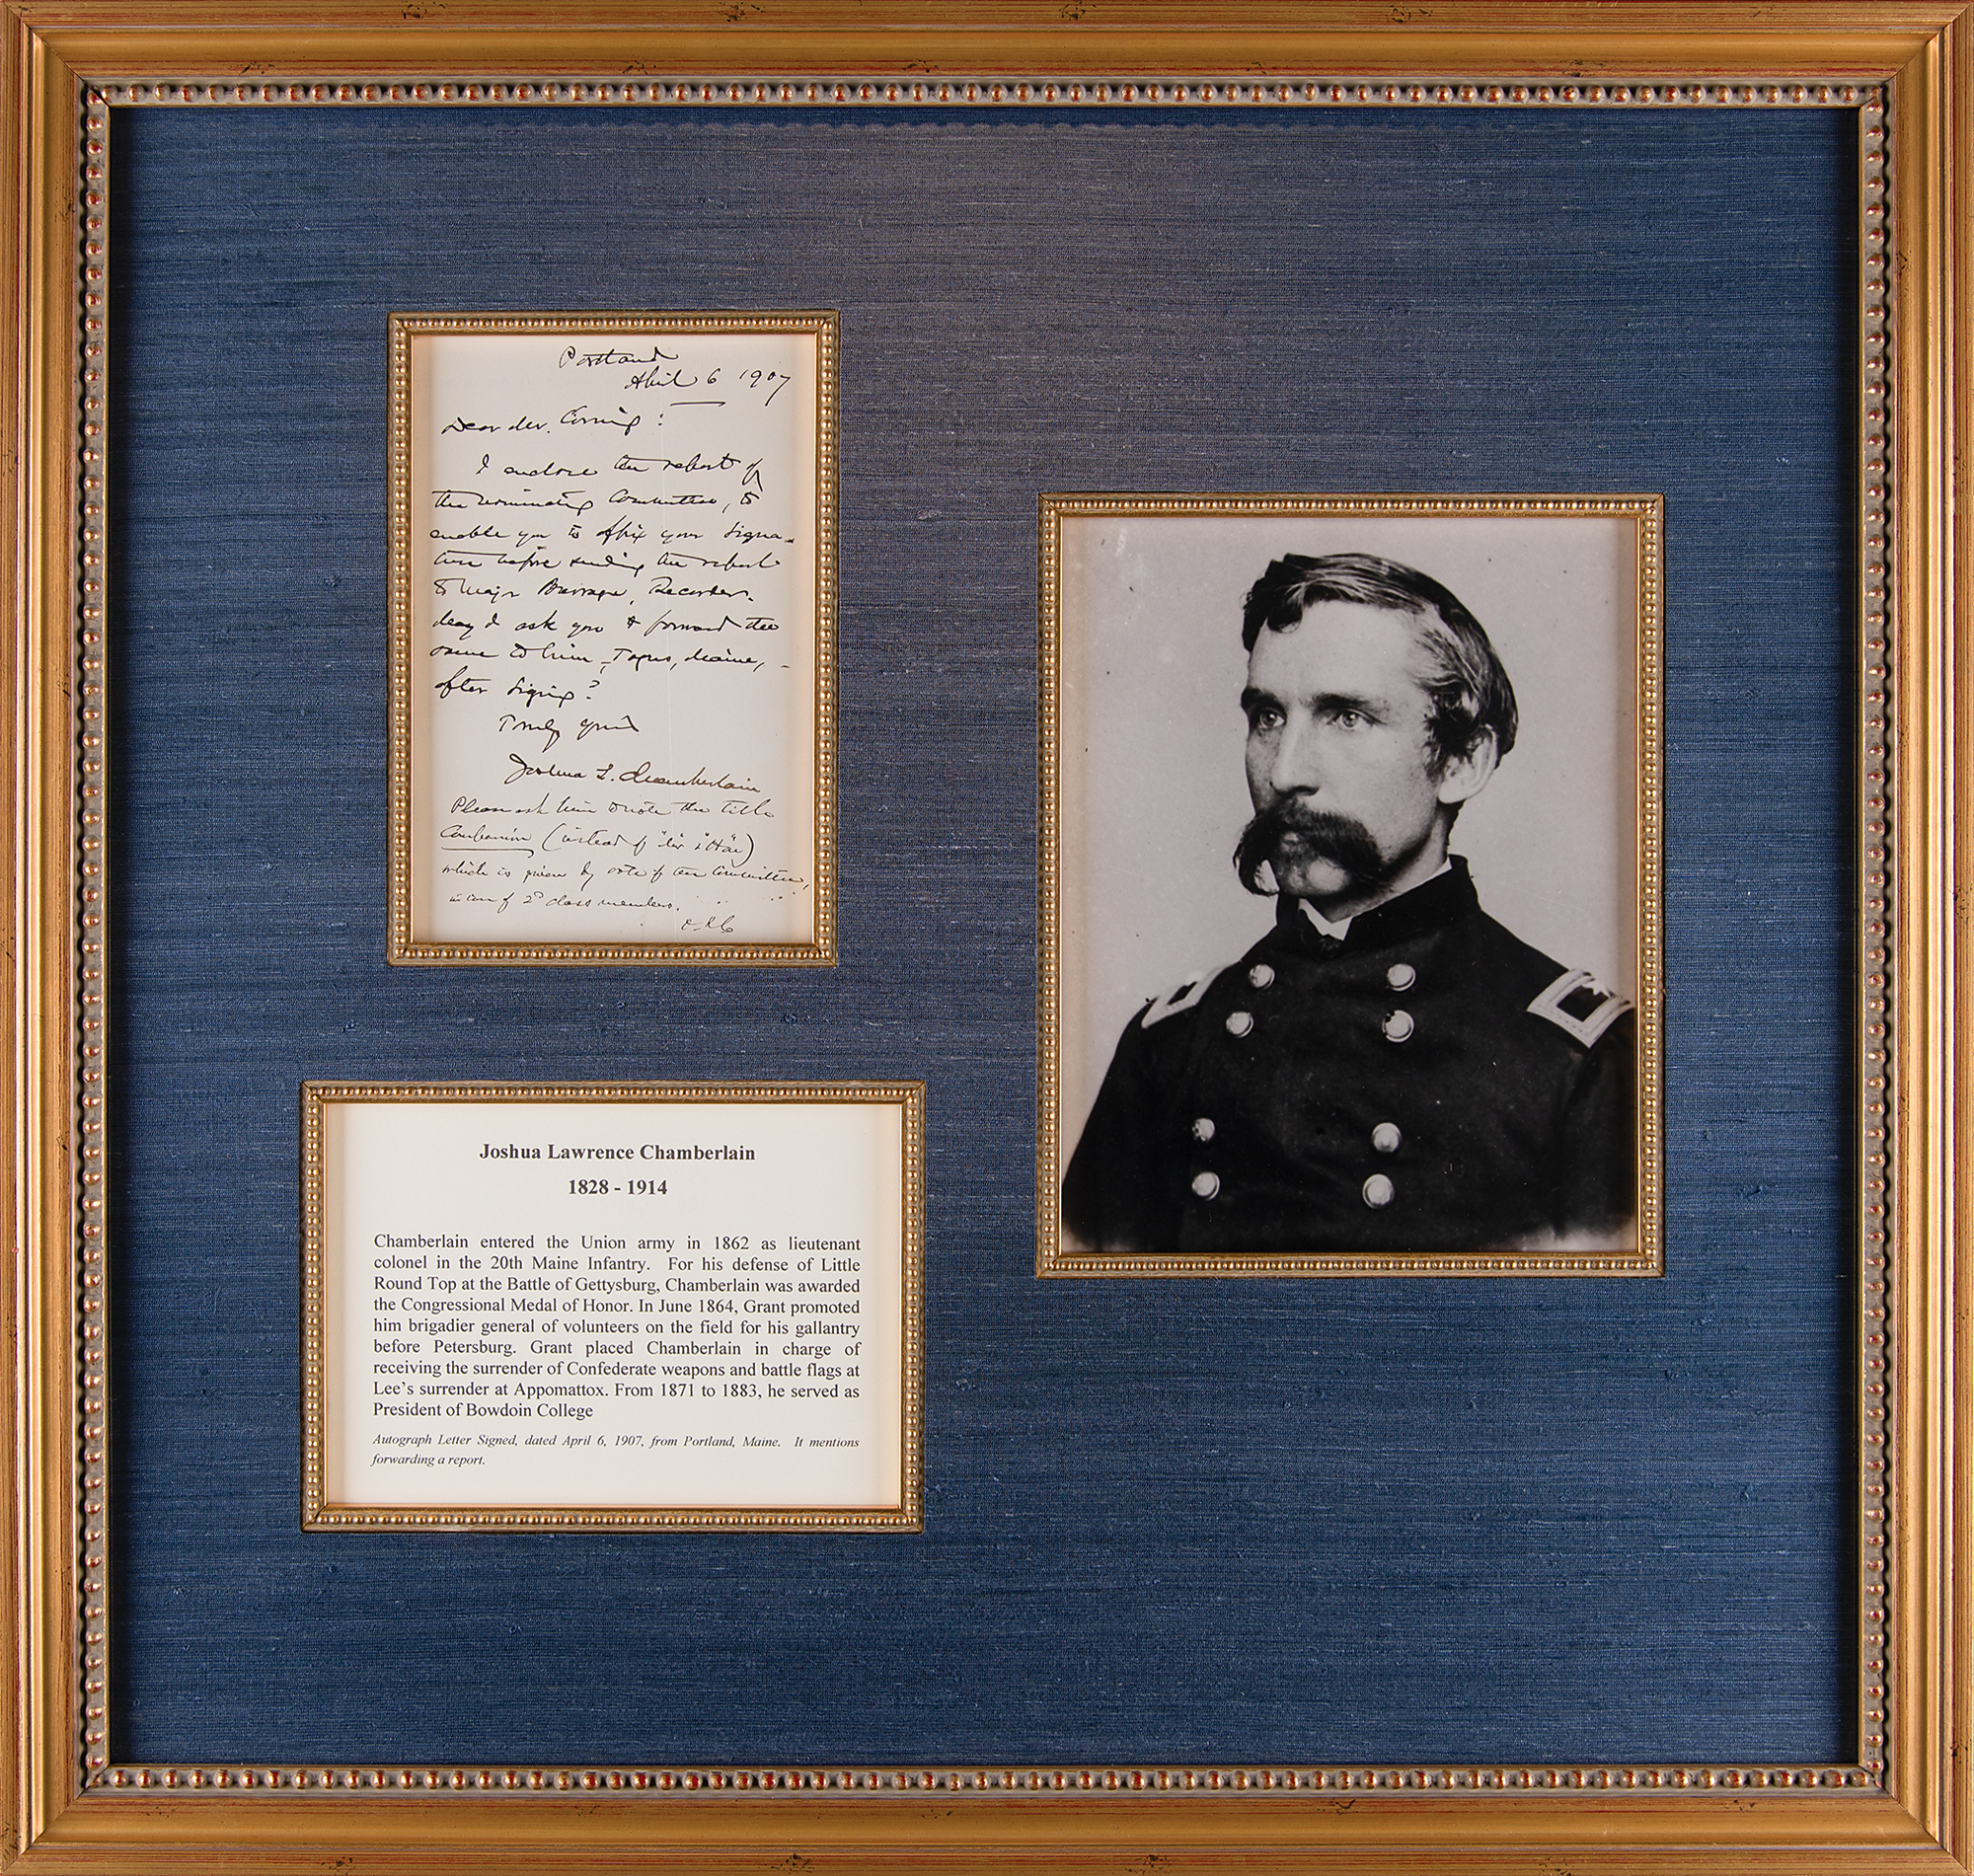 Portland
April 6 1907
Dear Mr. Corning:
I enclose the report of
the nominating Committee, to
enable you to affix your signa-
ture before sending the report
to Major Burrage, Recorder.
May I ask you to forward the
same to him, Togus, Maine,
after signing?
Truly yours
Joshua L. Chamberlain
Please ask him to note the title
Companion (instead of
which is given by vote of the Committee,
in case of 2d class members.
Joshua Lawrence Chamberlain
1828 - 1914
Chamberlain entered the Union army in 1862 as lieutenant
colonel in the 20th Maine Infantry. For his defense of Little
Round Top at the Battle of Gettysburg, Chamberlain was awarded
the Congressional Medal of Honor. In June 1864, Grant promoted
him brigadier general of volunteers on the field for his gallantry
before Petersburg. Grant placed Chamberlain in charge of
receiving the surrender of Confederate weapons and battle flags at
Lee's surrender at Appomattox. From 1871 to 1883, he served as
President of Bowdoin College
Autograph Letter Signed, dated April 6, 1907, from Portland, Maine. It mentions
forwarding a report.